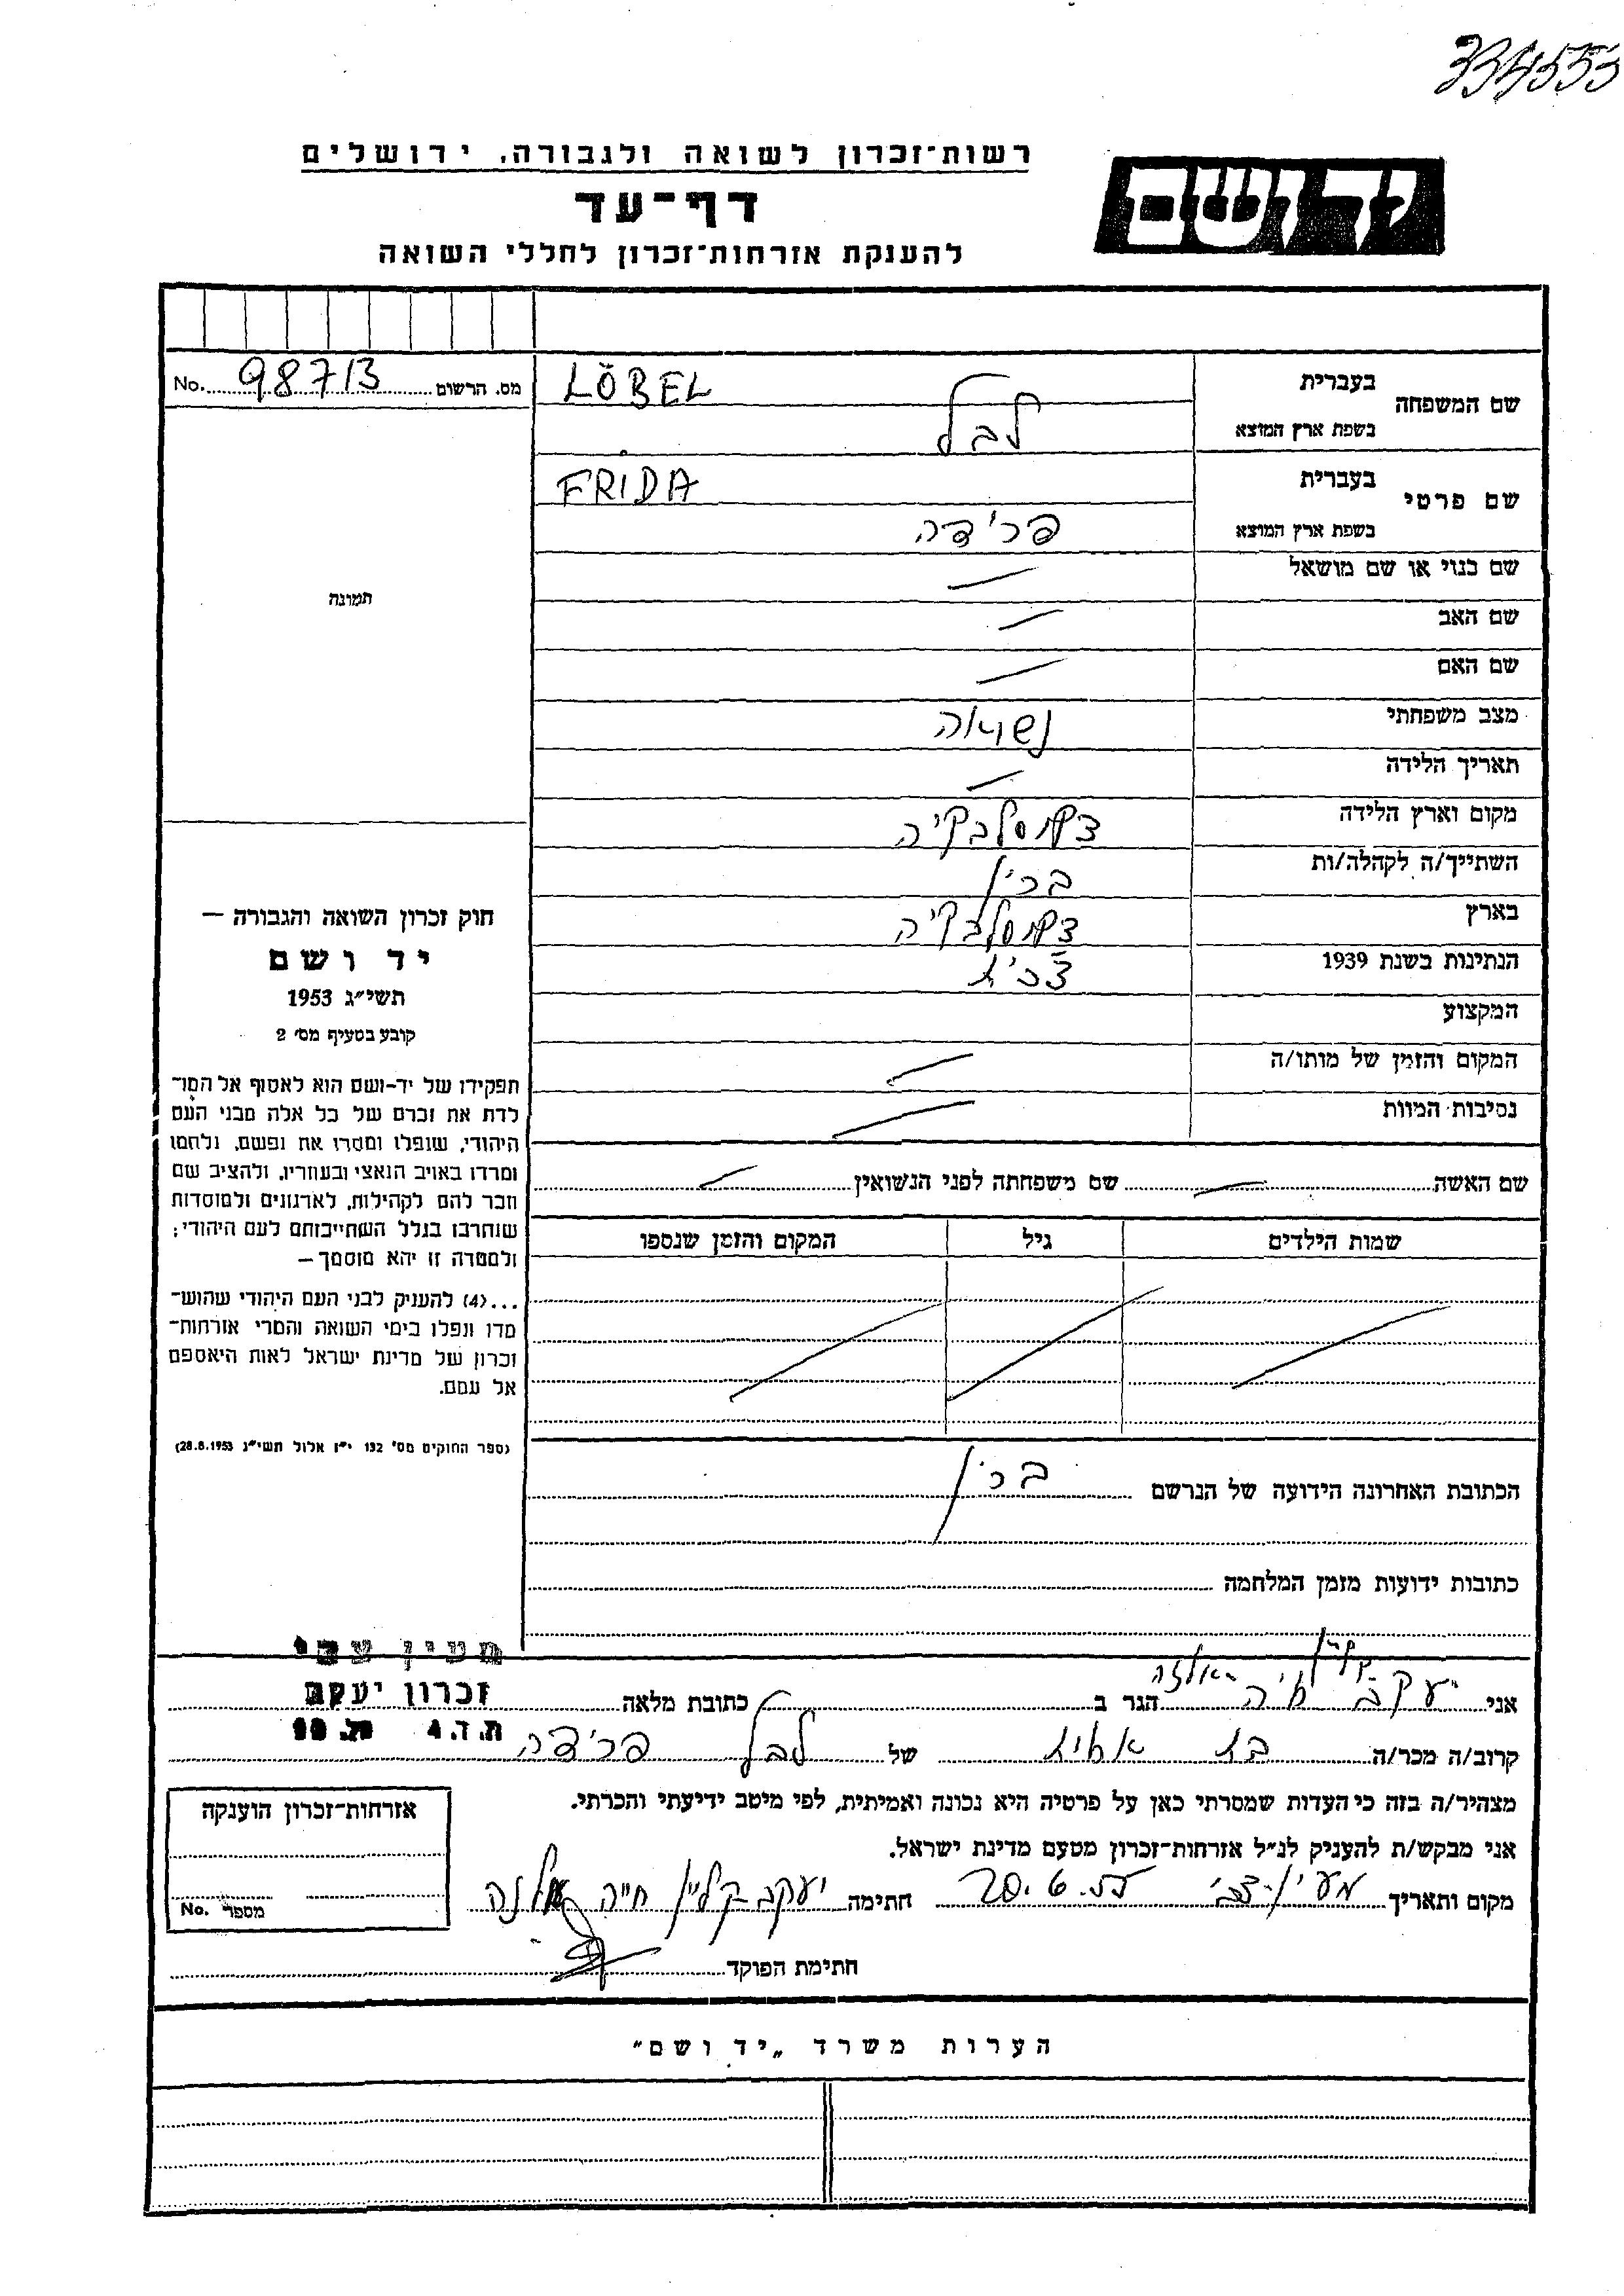 334553
רשות־זכרון לשואה ולגבורה, ירושלים
יד ושם
דף־עד
להענקת אזרחות־זכרון לחללי השואה
שם המשפחה
בעברית
LÖBEL
בשפת ארץ המוצא
לבל
מס. הרשום 98713 No.
שם פרטי
בעברית
FRIDA
בשפת ארץ המוצא
פרידה
תמונה
שם כנוי או שם מושאל
שם האב
שם האם
מצב משפחתי נשואה
תאריך הלידה
מקום וארץ הלידה
השתייך/ה לקהלה/ות ברין
בארץ
הנתינות בשנת 1939 צכית
המקצוע
המקום והזמן של מותו/ה
נסיבות המוות
שם האשה שם משפחתה לפני הנשואין
שמות הילדים גיל המקום והזמן שנספו
הכתובת האחרונה הידועה של הנרשם ברין
כתובות ידועות מזמן המלחמה
חוק זכרון השואה והגבורה —
יד ושם
תשי״ג 1953
קובע בסעיף מס׳ 2
תפקידו של יד-ושם הוא לאסוף אל המו־
לדת את זכרם של כל אלה מבני העם
היהודי, שנפלו ומסרו את נפשם, נלחמו
ומרדו באויב הנאצי ובעוזריו, ולהציב שם
וזכר להם לקהילות, לארגונים ולמוסדות
שנחרבו בגלל השתייכותם לעם היהודי;
ולמטרה זו יהא מוסמך —
...(4) להעניק לבני העם היהודי שהוש־
מדו ונפלו בימי השואה והמרי אזרחות־
זכרון של מדינת ישראל לאות היאספם
אל עמם.
(ספר החוקים מס׳ 132 י״ז אלול תשי״ג 28.8.1953)
קליין
אני יעקב חיה הגר ב כתובת מלאה
מעין צבי
זכרון יעקב
ת.ד. 4
קרוב/ה מכר/ה בת אחות של לבל פרידה
מצהיר/ה בזה כי העדות שמסרתי כאן על פרטיה היא נכונה ואמיתית, לפי מיטב ידיעתי והכרתי.
אני מבקש/ת להעניק לנ״ל אזרחות־זכרון מטעם מדינת ישראל.
מקום ותאריך מעין-צבי 20.6.55 חתימה יעקב קליין חיה
חתימת הפוקד
אזרחות־זכרון הוענקה
מספר No.
הערות משרד „יד ושם״